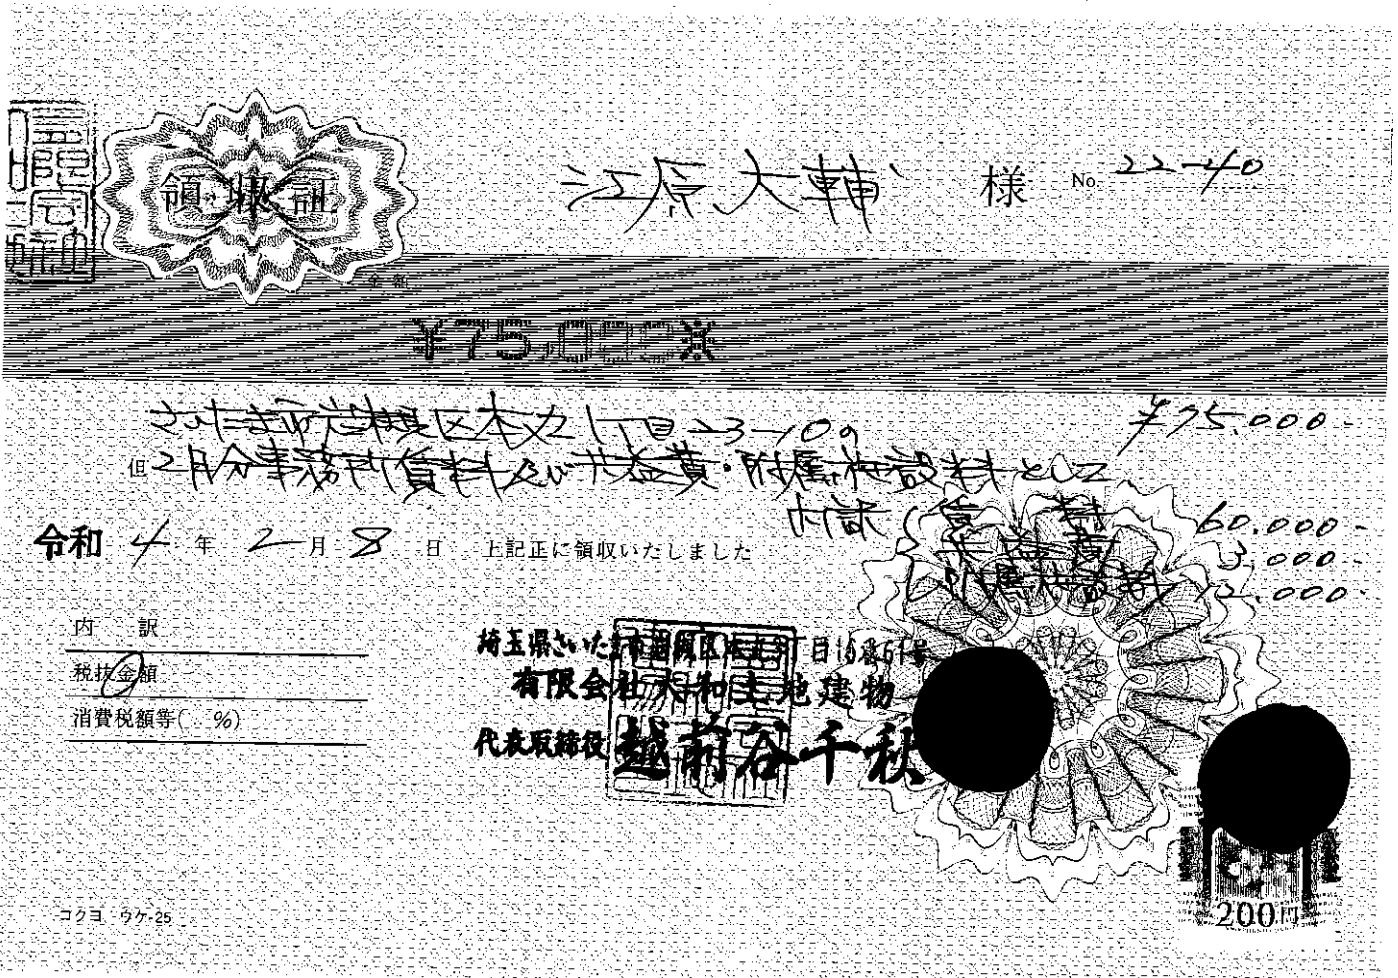 領収証
江原大輔 様 No 22-40
金額
¥75,000※
さいたま市岩槻区本丸1丁目23-10の ¥75.000-
但 2月分事務所賃料及び共益費・附属施設料として
内訳 賃料 60.000-
共益費 3.000-
附属施設料 12.000-
令和 4 年 2 月 8 日 上記正に領収いたしました
内訳
税抜金額
消費税額等( %)
埼玉県さいたま市岩槻区本丸 丁目16番61号
有限会社大和土地建物
代表取締役 越前谷千秋
200円
コクヨ ウケ-25